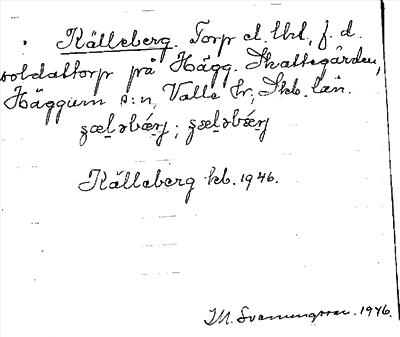 Källeberg. Torp el. lht, f. d.
soldattorp på Hägg. Skattegården,
Häggum s:n, Valle hr, Skb. län.
Källeberg kb. 1946.
M. Svenungsson. 1946.